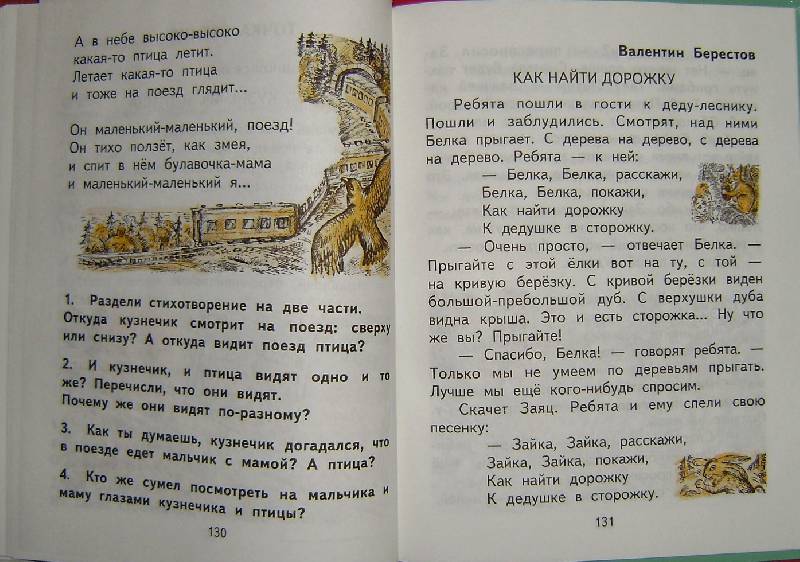 А в небе высоко-высоко
какая-то птица летит.
Летает какая-то птица
и тоже на поезд глядит...
Он маленький-маленький, поезд!
Он тихо ползёт, как змея,
и спит в нём булавочка-мама
и маленький-маленький я...
1. Раздели стихотворение на две части.
Откуда кузнечик смотрит на поезд: сверху
или снизу? А откуда видит поезд птица?
2. И кузнечик, и птица видят одно и то
же? Перечисли, что они видят.
Почему же они видят по-разному?
3. Как ты думаешь, кузнечик догадался, что
в поезде едет мальчик с мамой? А птица?
4. Кто же сумел посмотреть на мальчика и
маму глазами кузнечика и птицы?
130
Валентин Берестов
КАК НАЙТИ ДОРОЖКУ
Ребята пошли в гости к деду-леснику.
Пошли и заблудились. Смотрят, над ними
Белка прыгает. С дерева на дерево, с дерева
на дерево. Ребята — к ней:
— Белка, Белка, расскажи,
Белка, Белка, покажи,
Как найти дорожку
К дедушке в сторожку.
— Очень просто, — отвечает Белка. —
Прыгайте с этой ёлки вот на ту, с той —
на кривую берёзку. С кривой берёзки виден
большой-пребольшой дуб. С верхушки дуба
видна крыша. Это и есть сторожка... Ну что
же вы? Прыгайте!
— Спасибо, Белка! — говорят ребята. —
Только мы не умеем по деревьям прыгать.
Лучше мы ещё кого-нибудь спросим.
Скачет Заяц. Ребята и ему спели свою
песенку:
— Зайка, Зайка, расскажи,
Зайка, Зайка, покажи,
Как найти дорожку
К дедушке в сторожку.
131